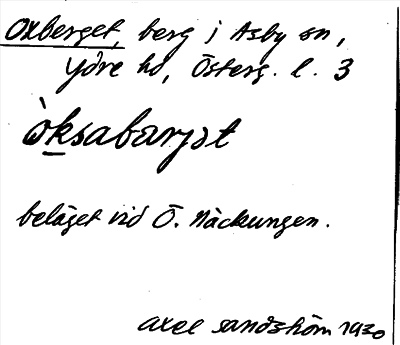 Oxberget, berg i Asby sn,
Ydre hd, Österg. l. 3
òksabærjət
beläget vid Ö. Näckungen.
Axel Sandström 1930